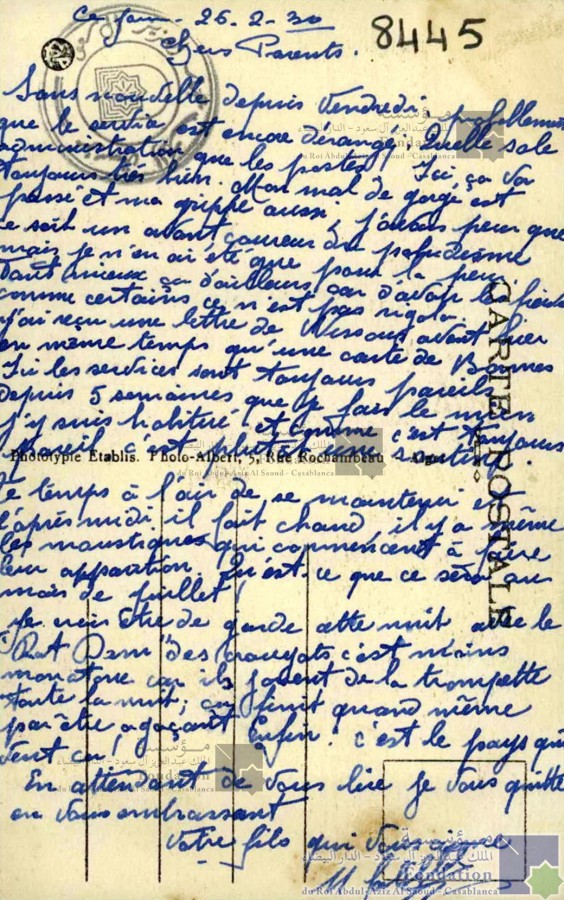 Ce jour. 26-2-30
8445
Chers Parents.
Sans nouvelle depuis Vendredi, probablement
que le service est encore dérangé, Quelle sale
administration que les postes. Ici, ça va
toujours très bien. Mon mal de gorge est
passé et ma grippe aussi. J'avais peur que
ce soit un avant coureur du paludisme
mais je n'en ai été que pour la peur
Tant mieux ça d'ailleurs car d'avoir la fièvre
comme certains ce n'est pas rigolo.
J'ai reçu une lettre de Wissous avant hier
en même temps qu'une carte de
Ici les services sont toujours pareils
depuis 5 semaines que je fais le même
j'y suis habitué et comme c'est toujours
pareil c'est
Phototypie Etablis. Photo-Albert, 5, Rue Rochambeau - Alger
CARTE POSTALE
Le temps à l'air de se maintenir et
l'après midi il fait chaud il y a même
les moustiques qui commencent à faire
leur apparition. Qu'est-ce que ce sera au
mois de juillet!
Je vais être de garde cette nuit avec le
Ram" Des c'est moins
monotone car ils jouent de la trompette
toute la nuit; ça finit quand même
par être agaçant Enfin! c'est le pays qui
veut ça!
En attendant de vous lire je vous quitte
en vous embrassant
Votre fils qui vous aime
مؤسسة
الملك عبد العزيز آل سعود - الدار البيضاء
Fondation
du Roi Abdul-Aziz Al Saoud - Casablanca